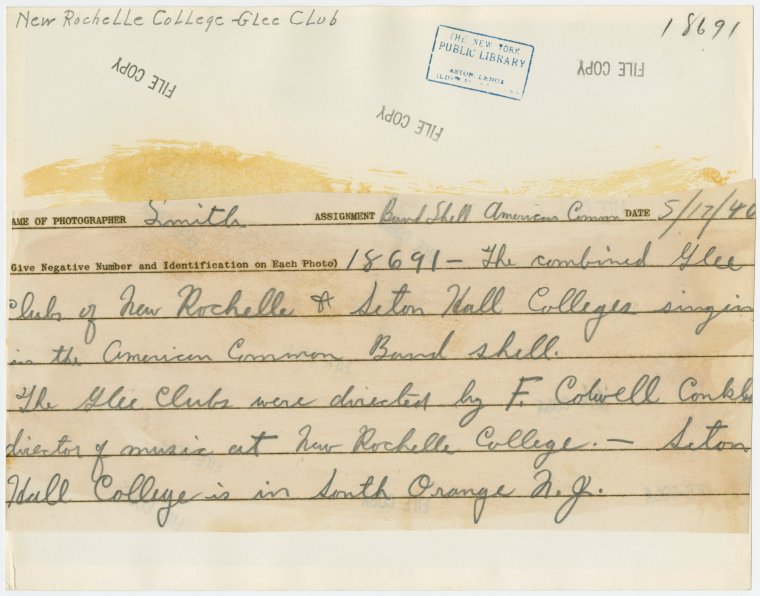 New Rochelle College - Glee Club
18691
FILE COPY
THE NEW YORK
PUBLIC LIBRARY
ASTOR LENOX
FILE COPY
FILE COPY
AME OF PHOTOGRAPHER Smith ASSIGNMENT Band Shell American Common DATE 5/17/40
Give Negative Number and Identification on Each Photo) 18691 - The combined Glee
Clubs of New Rochelle & Seton Hall Colleges singin
in the American Common Band shell.
The Glee Clubs were directed by F. Colwell Conkl
director of music at New Rochelle College. — Seton
Hall College is in South Orange N.J.